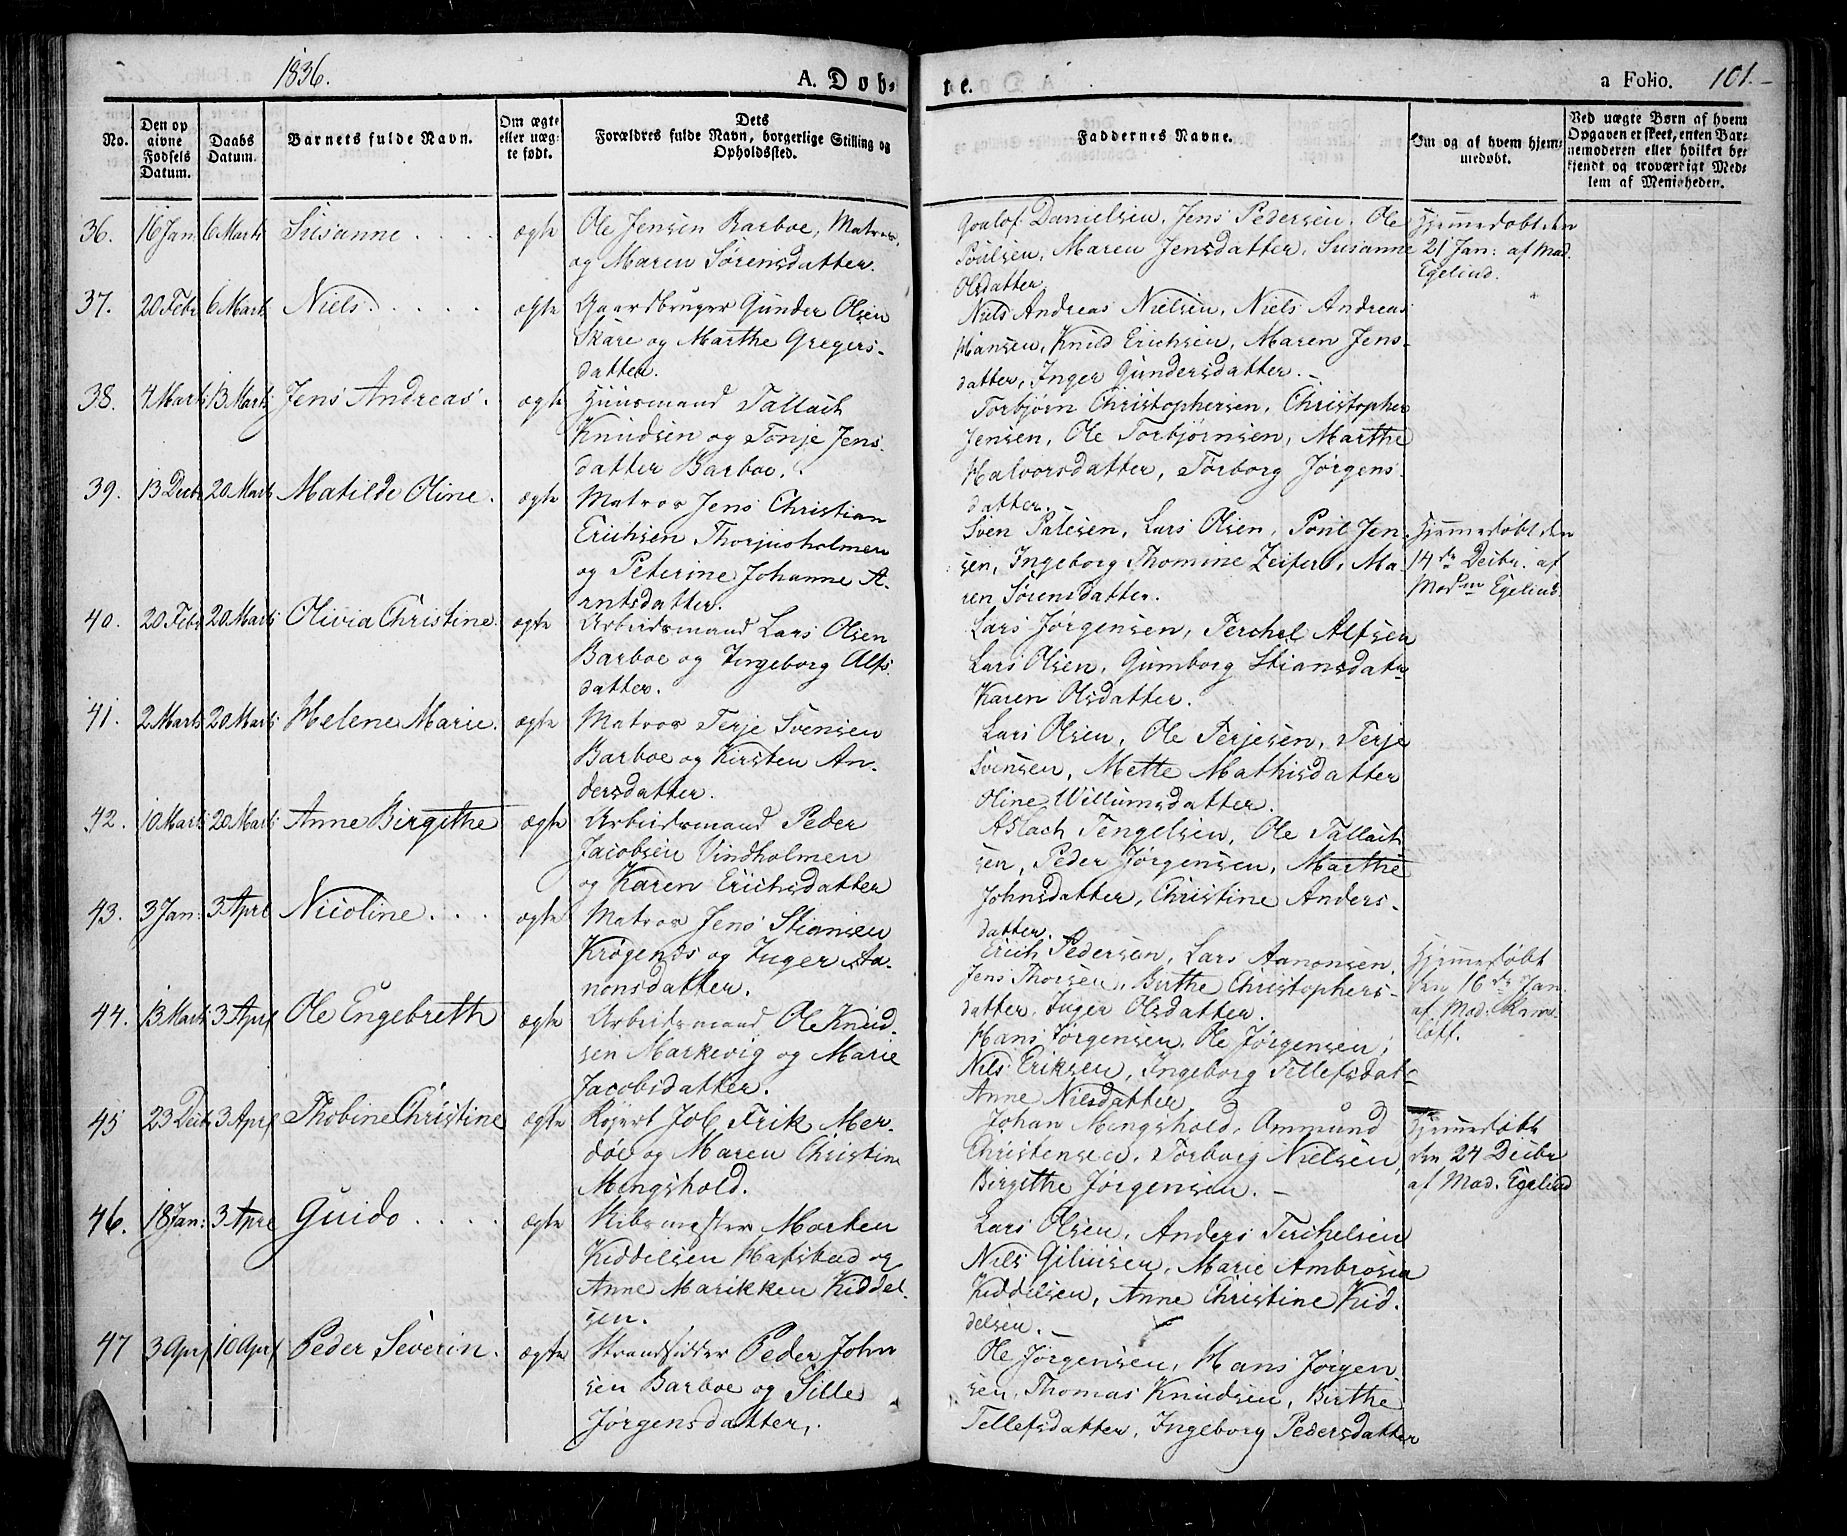 1836.
A. Døb-
te.
a Folio. 101.
No.
Den op
givne
Fødsels
Datum.
Daabs
Datum.
Barnets fulde Navn.
Om ægte
eller uæg-
te født.
Dets
Forældres fulde Navn, borgerlige Stilling og
Opholdssted.
Faddernes Navne.
Om og af hvem hjem-
medøbt.
Ved uægte Børn af hvem
Opgaven er skeet, enten Bar-
nemoderen eller hvilket be-
kjendt og troværdigt Med-
lem af Menigheden.
36. 16 Jan: 6 Marts Susanne ægte
Ole Jensen Barboe, Matros,
og Maren Sørensdatter.
Danielsen, Jens Pedersen, Ole
Poulsen, Maren Jensdatter, Susanne
Olsdatter.
Hjemmedøbt den
21 Jan: af Mad.
Egelund.
37. 20 Febr 6 Marts Niels. ægte
Gaardbruger Gunder Olsen
Skare og Marthe Gregers-
datter.
Niels Andreas Nielsen, Niels Andreas
Hansen, Knud Erichsen, Maren Jens-
datter, Inger Gundersdatter.
38. 4 Marts 13 Marts Jens Andreas. ægte
Huusmand Tallach
Knudsen og Tonje Jens
datter Barboe.
Torbjørn Christophersen, Christopher
Jensen, Ole Torbjørnsen, Marthe
Halvorsdatter, Torborg Jørgens
datter.
39. 13 Decbr 20 Marts Matilde Oline. ægte
Matros Jens Christian
Erichsen Thorjusholmen
og Peterine Johanne A-
rntsdatter.
Sven Palesen, Lars Olsen, Poul Jen-
sen, Ingeborg Thomine Zeifert, Ma-
ren Sørensdatter.
Hjemmedøbt den
14de Decbr. af
Madm Egelund.
40. 20 Febr 20 Marts Olivia Christine. ægte
Arbeidsmand Lars Olsen
Barboe og Ingeborg Alfs
datter.
Lars Jørgensen, Terchel Alfsen
Lars Olsen, Gumborg Stiansdatr
Karen Olsdatter.
41. 2 Marts 20 Marts Helene Marie. ægte
Matros Terje Svensen
Barboe og Kirsten An-
dersdatter.
Lars Olsen, Ole Terjesen, Terje
Svensen, Mette Mathisdatter
Oline Willumsdatter.
42. 10 Marts 20 Marts Anne Birgithe ægte
Arbeidsmand Peder
Jacobsen Vindholmen
og Karen Erichsdatter
Aslach Tengelsen, Ole Tallach
sen, Peder Jørgensen, Marthe
Johnsdatter, Christine Anders-
datter.
43. 3 Jan: 3 Apr Nicoline ægte
Matros Jens Stiansen
Krøgenes og Inger Aa-
nonsdatter.
Erich Pedersen, Lars Aanonsen,
Jens Thorsen, Birthe Christophers-
datter, Inger Olsdatter.
Hjemmedøbt
den 16de Jan.
af Mad.
44. 13 Marts 3 Apr Ole Engebreth ægte
Arbeidsmand Ole Knud-
sen Markevig og Marie
Jacobsdatter.
Hans Jørgensen, Ole Jørgensen,
Niels Eriksen, Ingeborg Tellefsdatr
Anne Nielsdatter
45 23 Decbr 3 Apr Thobine Christine ægte
Job Frik Mer-
døe og Maren Christine
Mengshold.
Johan Mengshold, Ammund
Christensen, Torborg Nielsen,
Birgithe Jørgensen.
Hjemmedøbt
den 24 Decbr
af Mad. Egelund
46. 18 Jan: 3 Apr Guido ægte
Skibsmester Morten
Kiddelsen Hafstad og
Anne Marikken Kiddel-
sen.
Lars Olsen, Anders Terchelsen
Niels Gilnisen, Marie Ambrosia
Kiddelsen, Anne Christine Kid-
delsen.
47 3 Apr 10 Apr Peder Severin. ægte
Strandsidder Peder John
sen Barboe og Sille
Jørgensdatter.
Ole Jørgensen, Hans Jørgen
sen, Thomas Knudsen, Birthe
Tellefsdatter, Ingeborg Pedersdatter